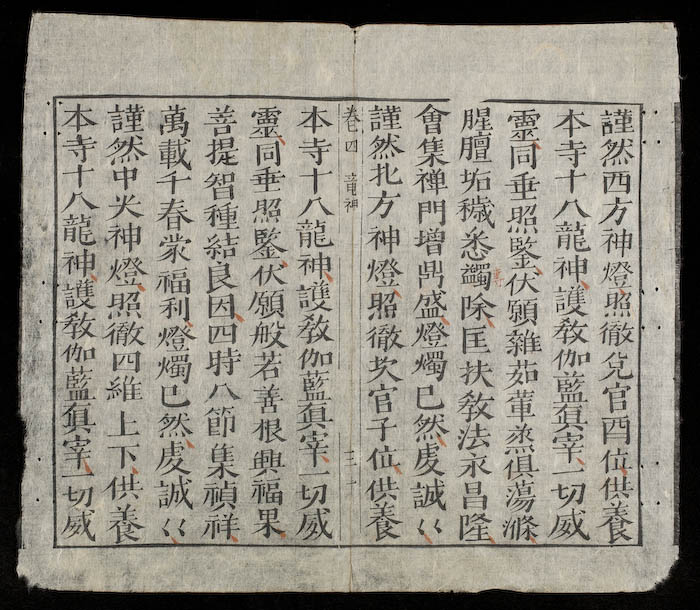 謹然西方神燈照徹兌宮酉位供養
本寺十八龍神護敎伽藍眞宰一切威
靈同垂照鑒伏願雜茹葷烝俱蕩滌
腥膻垢穢悉蠲除匡扶敎法永昌隆
會集禅門增鼎盛燈燭已然虔誠〻
謹然北方神燈照徹坎宮子位供養
卷四 竜神 三十
本寺十八龍神護敎伽藍眞宰一切威
靈同垂照鑒伏願般若善根興福果
菩提智種結良因四時八節集禎祥
萬載千春蒙福利燈燭已然虔誠〻
謹然中央神燈照徹四維上下供養
本寺十八龍神護敎伽藍眞宰一切威